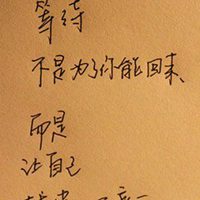 等待
不是为了你能回来
而是
让自己